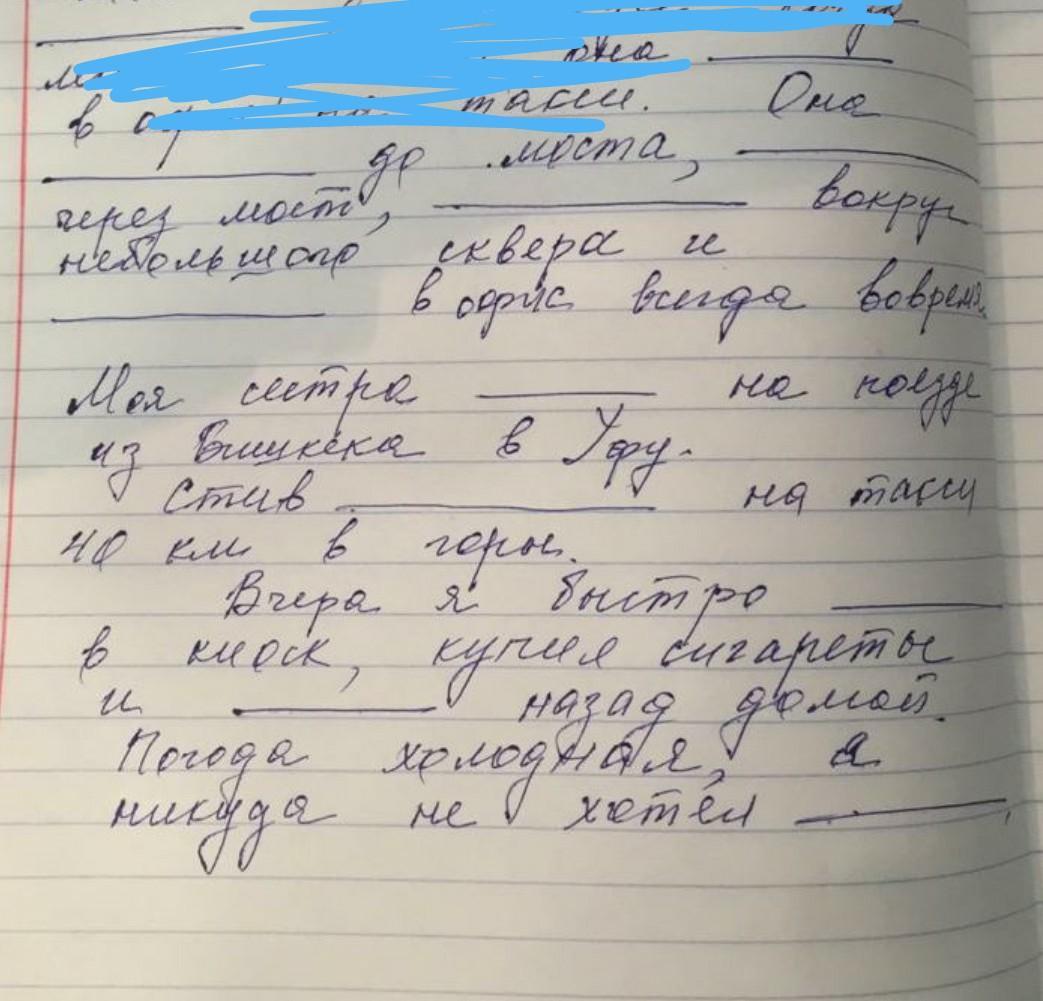 в такси. Она
________ до моста, ________
через мост, ________ вокруг
небольшого сквера и
________ в офис всегда вовремя.
Моя сестра ________ на поезде
из Бишкека в Уфу.
Стив ________ на такси
40 км в горы.
Вчера я быстро ________
в киоск, купил сигареты
и ________ назад домой.
Погода холодная, я
никуда не хотел ________.